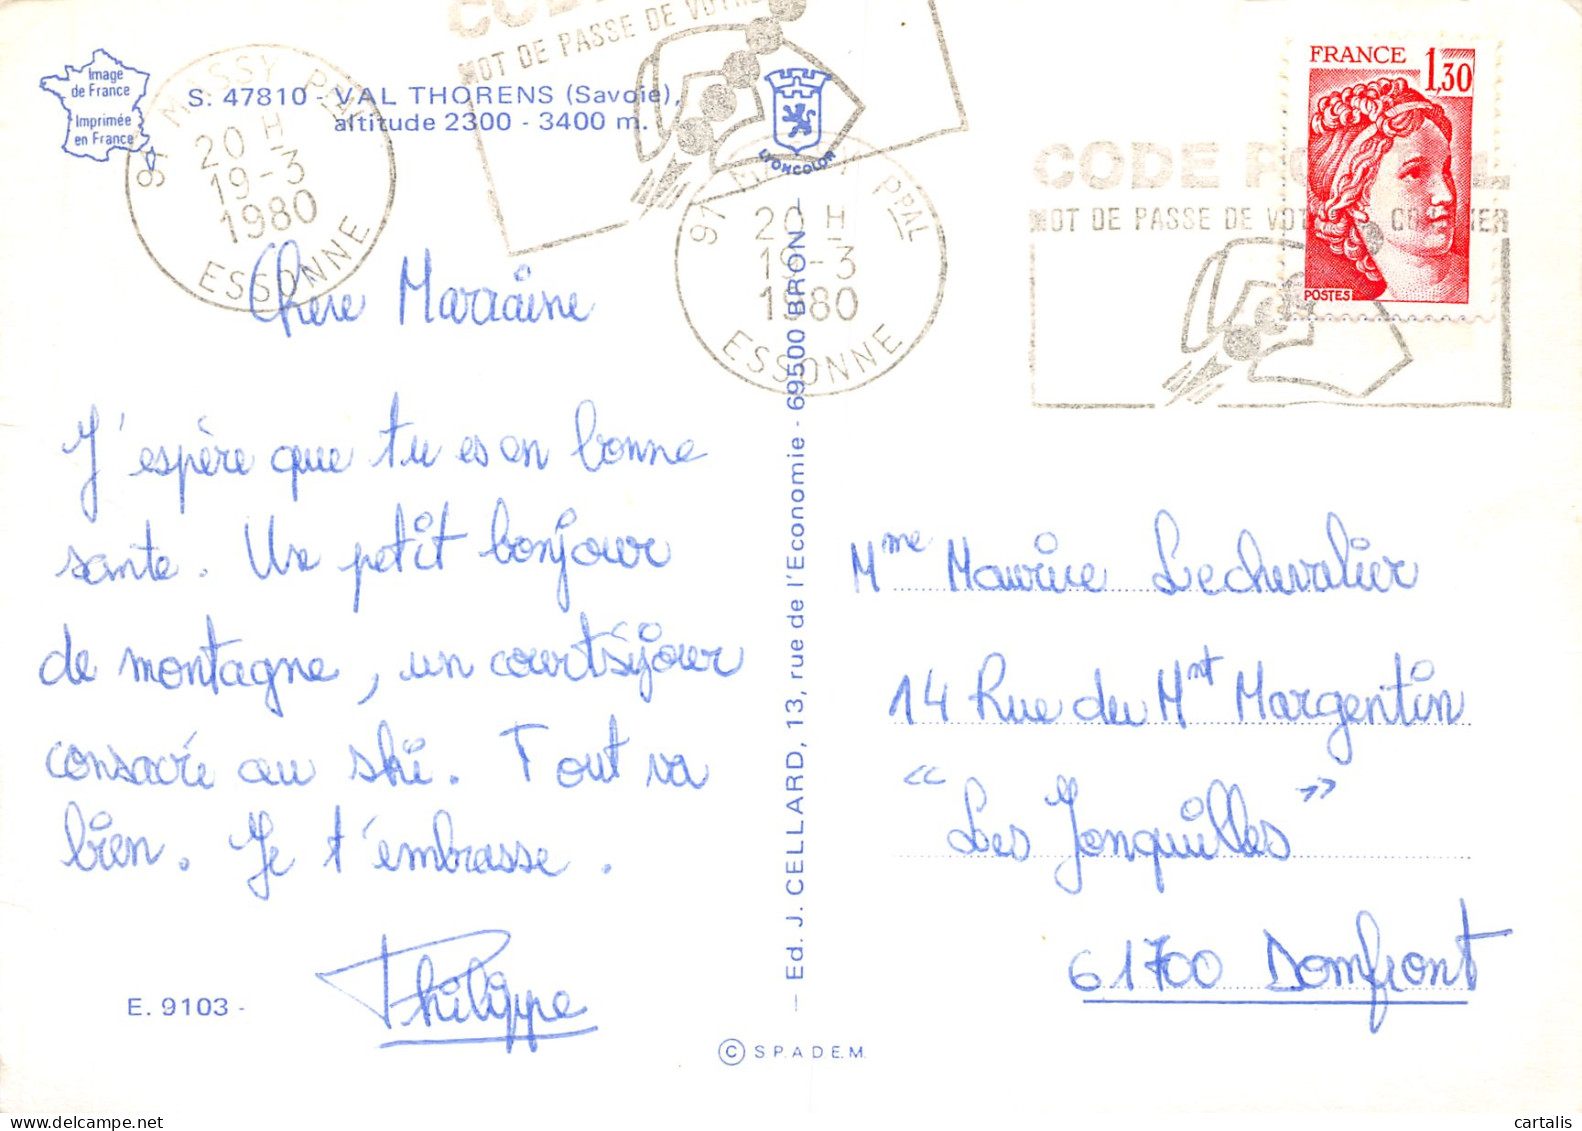 Image
de France
Imprimée
en France
S. 47810 - VAL THORENS (Savoie),
altitude 2300 - 3400 m.
LYONCOLOR
91 MASSY PPAL
20 H
19-3
1980
ESSONNE
MOT DE PASSE DE VOTRE
91 MASSY PPAL
20 H
19-3
1980
ESSONNE
CODE POSTAL
MOT DE PASSE DE VOTRE COURRIER
FRANCE 1,30
POSTES
Chère Marraine
J'espère que tu es en bonne
sante. Un petit bonjour
de montagne, un court séjour
consacré au ski. Tout va
bien. Je t'embrasse.
Philippe
E. 9103 -
— Ed. J. CELLARD, 13, rue de l'Economie - 69500 BRON —
© S.P.A.D.E.M.
Mme Maurice Lechevalier
14 Rue du Mnt Margentin
"Les Jonquilles"
61700 Domfront
cartalis